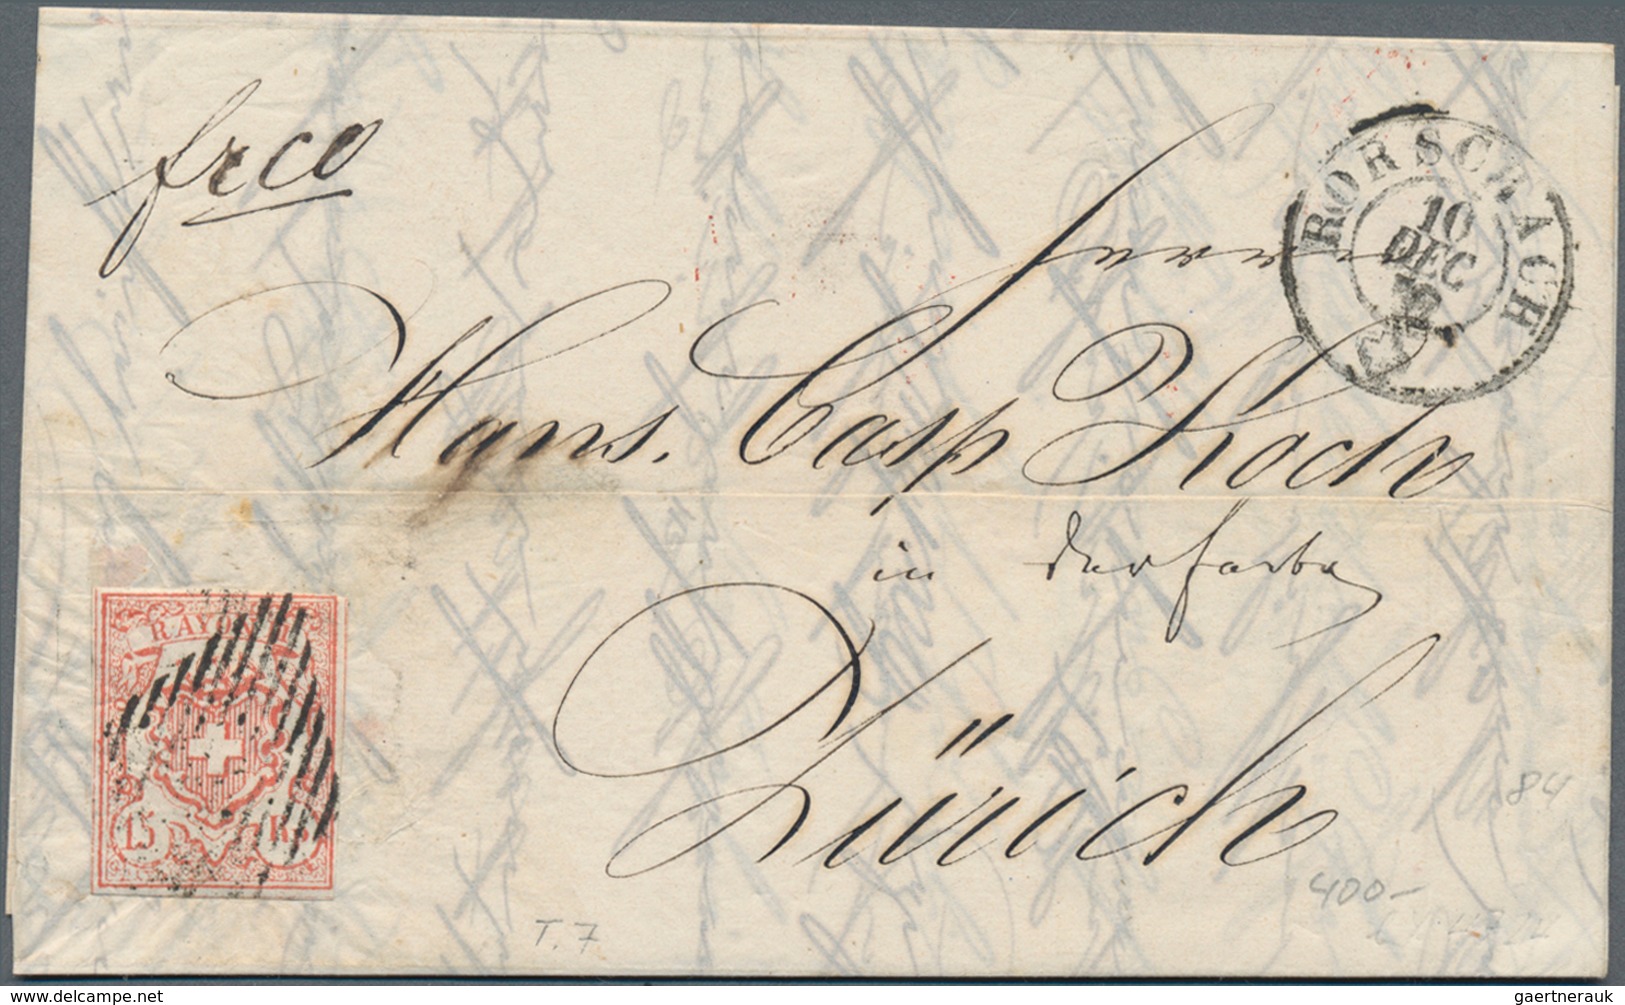 frco
RORSCHACH
10
DEC
Herrn
Hans. Casp Koch
in der Farbe
Zürich
RAYON III
15 Rp
84
400-
T. 7
www.delcampe.net
gaertnerauk